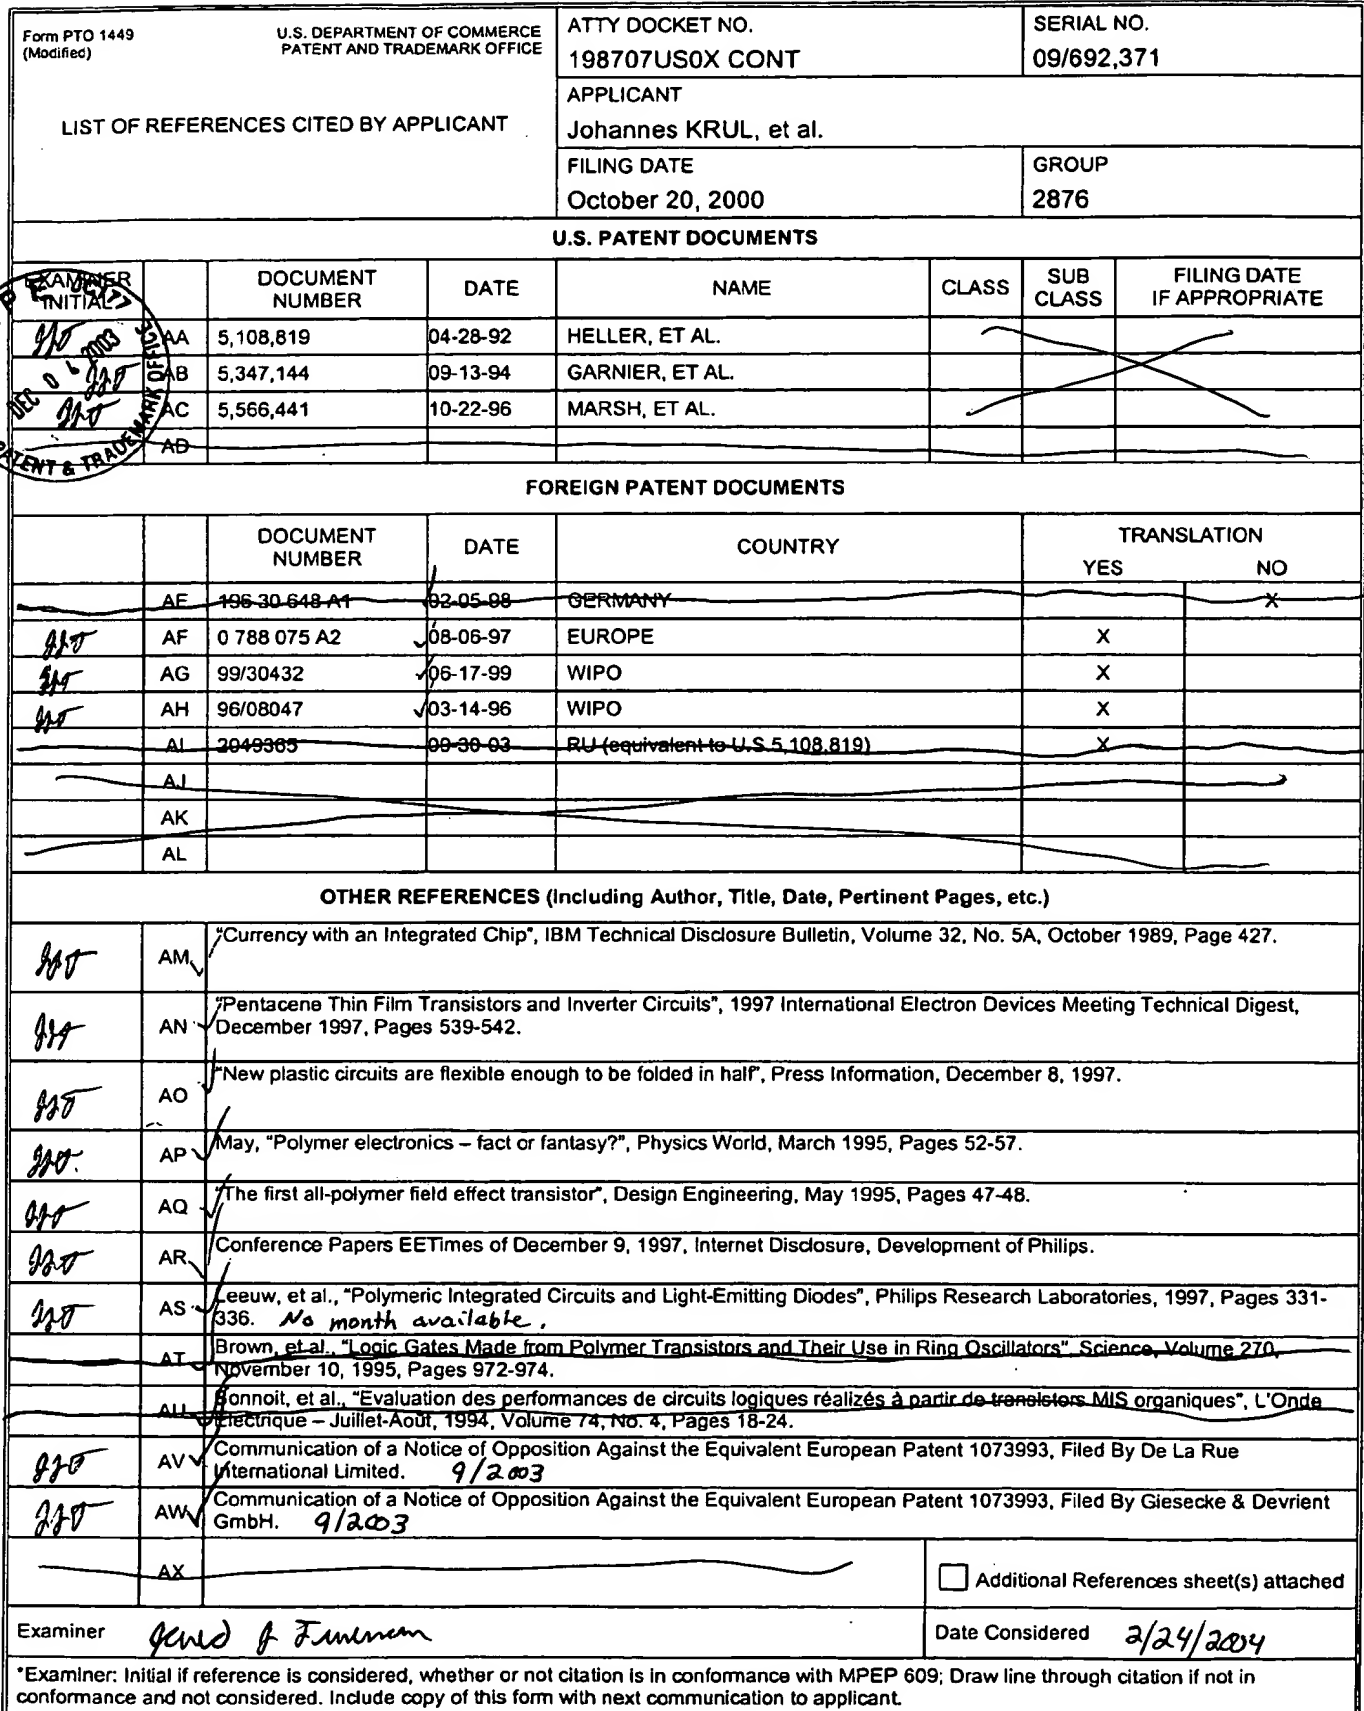 Form PTO 1449
(Modified)
U.S. DEPARTMENT OF COMMERCE
PATENT AND TRADEMARK OFFICE
ATTY DOCKET NO.
198707US0X CONT
SERIAL NO.
09/692,371
LIST OF REFERENCES CITED BY APPLICANT
APPLICANT
Johannes KRUL, et al.
FILING DATE
October 20, 2000
GROUP
2876
U.S. PATENT DOCUMENTS
EXAMINER INITIAL DOCUMENT NUMBER DATE NAME CLASS SUB CLASS FILING DATE IF APPROPRIATE
AA 5,108,819 04-28-92 HELLER, ET AL.
AB 5,347,144 09-13-94 GARNIER, ET AL.
AC 5,566,441 10-22-96 MARSH, ET AL.
AD
DEC 0 2003
PATENT & TRADEMARK OFFICE
FOREIGN PATENT DOCUMENTS
DOCUMENT NUMBER DATE COUNTRY TRANSLATION
YES NO
AE 196 30 648 A1 02-05-98 GERMANY X
AF 0 788 075 A2 08-06-97 EUROPE X
AG 99/30432 06-17-99 WIPO X
AH 96/08047 03-14-96 WIPO X
AI 2049365 09-30-03 RU (equivalent to U.S.5,108,819) X
AJ
AK
AL
OTHER REFERENCES (Including Author, Title, Date, Pertinent Pages, etc.)
AM "Currency with an Integrated Chip", IBM Technical Disclosure Bulletin, Volume 32, No. 5A, October 1989, Page 427.
AN "Pentacene Thin Film Transistors and Inverter Circuits", 1997 International Electron Devices Meeting Technical Digest,
December 1997, Pages 539-542.
AO "New plastic circuits are flexible enough to be folded in half", Press Information, December 8, 1997.
AP May, "Polymer electronics – fact or fantasy?", Physics World, March 1995, Pages 52-57.
AQ "The first all-polymer field effect transistor", Design Engineering, May 1995, Pages 47-48.
AR Conference Papers EETimes of December 9, 1997, Internet Disclosure, Development of Philips.
AS Leeuw, et al., "Polymeric Integrated Circuits and Light-Emitting Diodes", Philips Research Laboratories, 1997, Pages 331-
336. No month available.
AT Brown, et al., "Logic Gates Made from Polymer Transistors and Their Use in Ring Oscillators", Science, Volume 270,
November 10, 1995, Pages 972-974.
AU Bonnoit, et al., "Evaluation des performances de circuits logiques réalizés à partir de transistors MIS organiques", L'Onde
Electrique – Juillet-Août, 1994, Volume 74, No. 4, Pages 18-24.
AV Communication of a Notice of Opposition Against the Equivalent European Patent 1073993, Filed By De La Rue
International Limited. 9/2003
AW Communication of a Notice of Opposition Against the Equivalent European Patent 1073993, Filed By Giesecke & Devrient
GmbH. 9/2003
AX
Additional References sheet(s) attached
Examiner
Date Considered 2/24/2004
*Examiner: Initial if reference is considered, whether or not citation is in conformance with MPEP 609; Draw line through citation if not in
conformance and not considered. Include copy of this form with next communication to applicant.